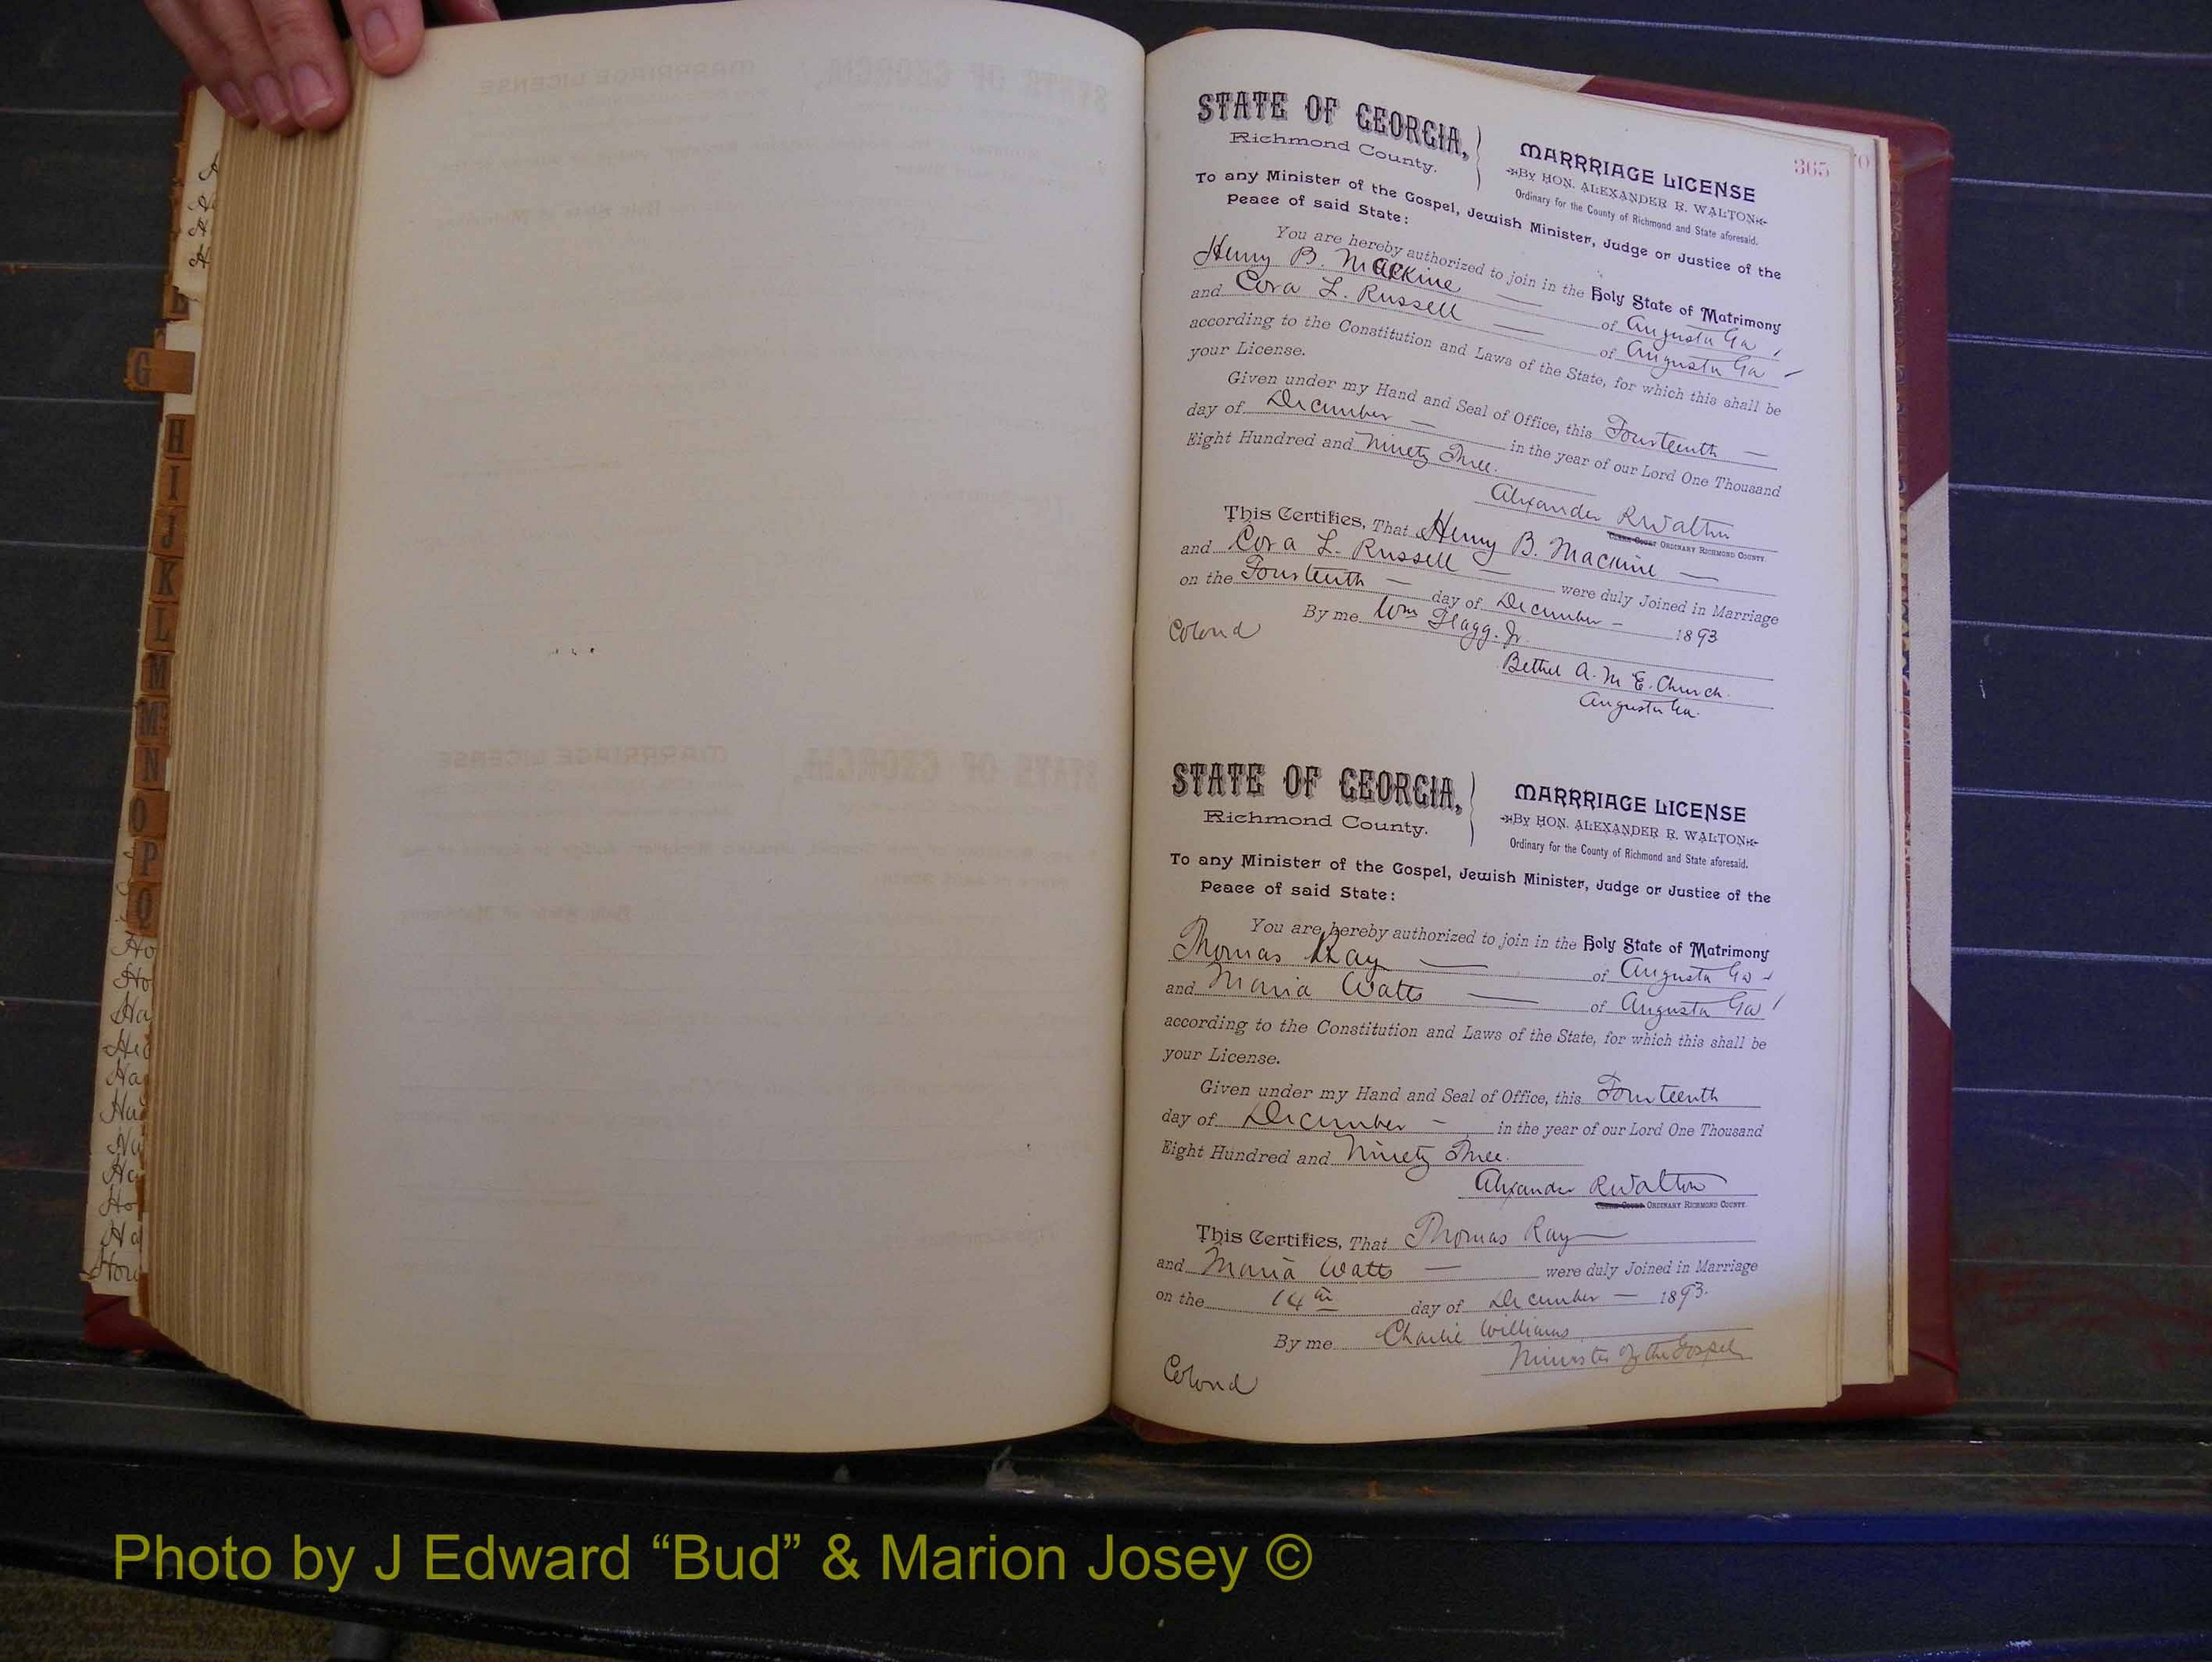 365
STATE OF GEORGIA,
Richmond County.
MARRRIAGE LICENSE
BY HON. ALEXANDER R. WALTON
Ordinary for the County of Richmond and State aforesaid.
To any Minister of the Gospel, Jewish Minister, Judge or Justice of the
Peace of said State:
You are hereby authorized to join in the Holy State of Matrimony
Henry B. Mackine of Augusta Ga
and Cora L. Russell of Augusta Ga
according to the Constitution and Laws of the State, for which this shall be
your License.
Given under my Hand and Seal of Office, this Fourteenth
day of December in the year of our Lord One Thousand
Eight Hundred and Ninety Three.
Alexander R Walton
ORDINARY RICHMOND COUNTY.
This Certifies, That Henry B. Mackine
and Cora L. Russell were duly Joined in Marriage
on the Fourteenth day of December 1893
By me Wm Flagg. Jr.
Colored
Bethel A. M. E. Church.
Augusta Ga.
STATE OF GEORGIA,
Richmond County.
MARRRIAGE LICENSE
BY HON. ALEXANDER R. WALTON
Ordinary for the County of Richmond and State aforesaid.
To any Minister of the Gospel, Jewish Minister, Judge or Justice of the
Peace of said State:
You are hereby authorized to join in the Holy State of Matrimony
Thomas Ray of Augusta Ga
and Maria Watts of Augusta Ga
according to the Constitution and Laws of the State, for which this shall be
your License.
Given under my Hand and Seal of Office, this Fourteenth
day of December in the year of our Lord One Thousand
Eight Hundred and Ninety Three.
Alexander R Walton
ORDINARY RICHMOND COUNTY.
This Certifies, That Thomas Ray
and Maria Watts were duly Joined in Marriage
on the 14th day of December 1893.
By me Charlie Williams
Minister of the Gospel
Colored
G
H
I
J
K
L
M
Mc
N
O
P
Q
Photo by J Edward “Bud” & Marion Josey ©